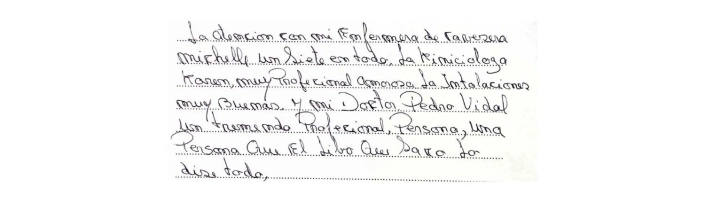 La atencion con mi Enfermera de Cabezera
michelle un Siete en todo, La Kiniciologa
Karen, muy Profecional amorosa La Intalaciones
muy Buenas y mi Doctor Pedro Vidal
un tremendo Profecional, Persona, una
Persona Que El Libo Que Saco Lo
dise todo,